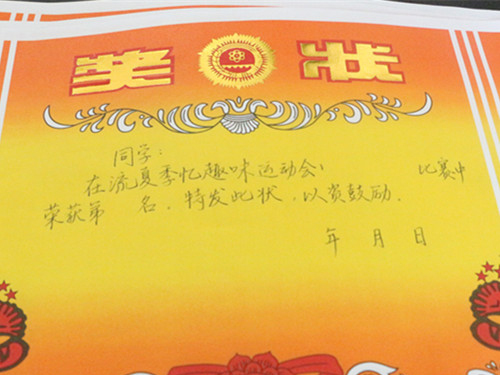 奖状
同学:
在流夏季忆趣味运动会 比赛中
荣获第 名,特发此状,以资鼓励.
年 月 日